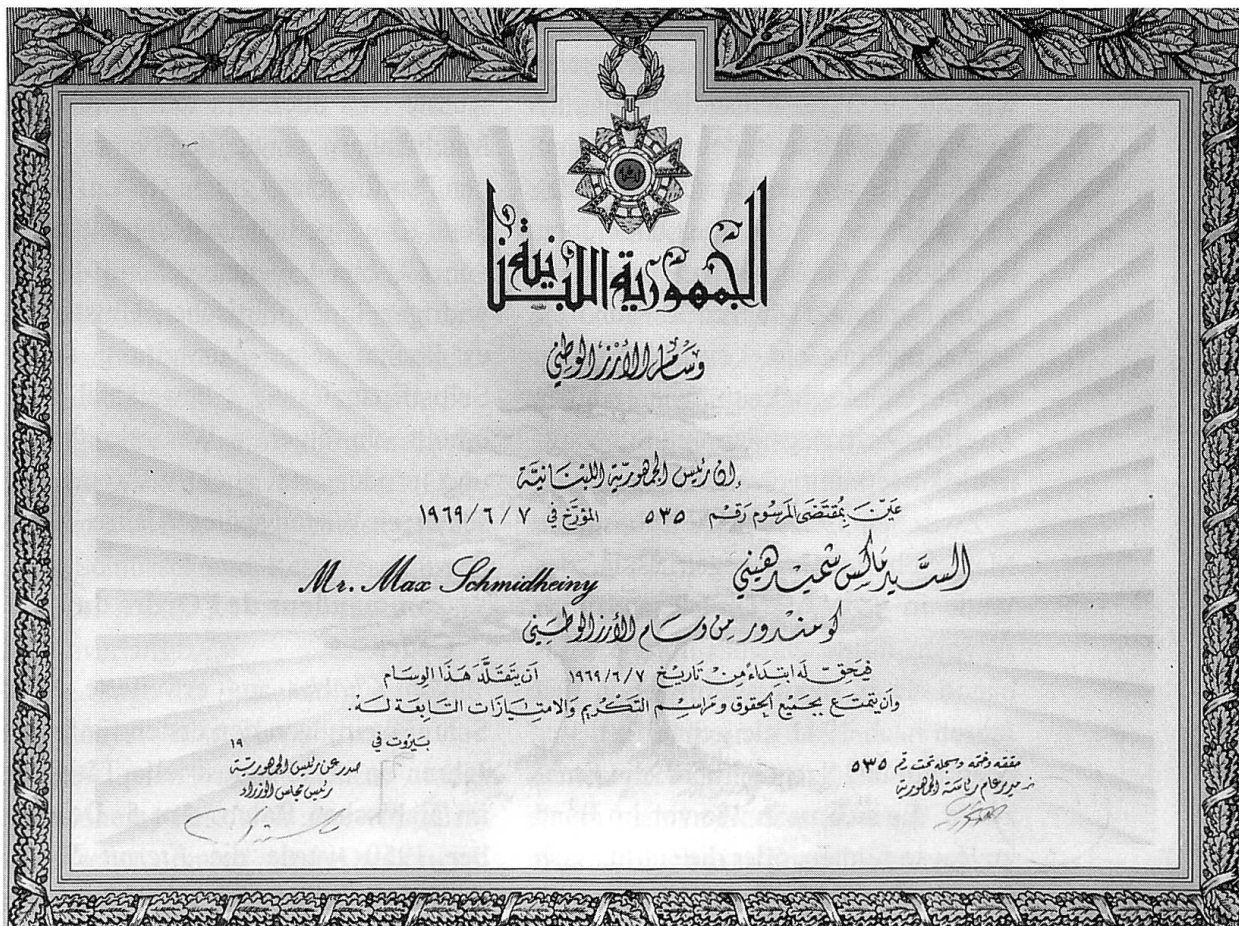 الجمهورية اللبنانية
وسام الأرز الوطني
إن رئيس الجمهورية اللبنانية
عين بمقتضى المرسوم رقم ٥٣٥ المؤرخ في ١٩٦٩/٦/٧
السيد ماكس شميدهيني Mr. Max Schmidheiny
كومندور من وسام الأرز الوطني
فيحق له ابتداء من تاريخ ١٩٦٩/٦/٧ أن يتقلد هذا الوسام
وأن يتمتع بجميع الحقوق ومراسم التكريم والامتيازات التابعة له.
بيروت في ١٩
صدر عن رئيس الجمهورية
رئيس مجلس
وسجله تحت رقم ٥٣٥
مدير عام رئاسة الجمهورية